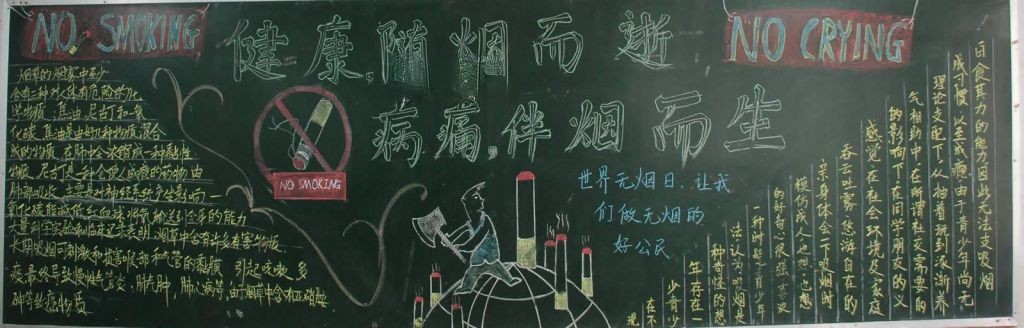 NO SMOKING
健康,随烟而逝
NO CRYING
病痛,伴烟而生
NO SMOKING
世界无烟日,让我
们做无烟的
好公民
烟草的烟雾中至少
含有三种对人体有危险的化
学物质,焦油,尼古丁和一氧
化碳,焦油是由好几种物质混合
成的物质,在肺中会浓缩成一种黏性
物质,尼古丁是一种会使人成瘾的药物,由
肺部吸收,主要是对神经系统产生影响一
氧化碳能减低红血球将氧输送到全身的能力
大量科学实验和临床记录表明,烟草中含有许多有害物质
长期吸烟可刺激和损害喉部和气管的黏膜,引起咳嗽多
痰,最后导致慢性气管炎,肺气肿,肺心病等,由于烟草中含有亚硝胺
砷等致癌物质
现
在不
少青少
年存在一
种奇怪的想
法认为吸烟是
一种时髦青少年
的好奇心很强喜欢
模仿成人也想也想
亲身体会一下吸烟时
吞云吐雾悠游自在的
感觉在社会环境及家庭
的影响下在同学朋友的义
气相助中在所谓社交需要的
理论支配下,从相着玩到逐渐养
成习惯以至成瘾.由于青少年尚无
日食其力的能力因此无法支吸烟